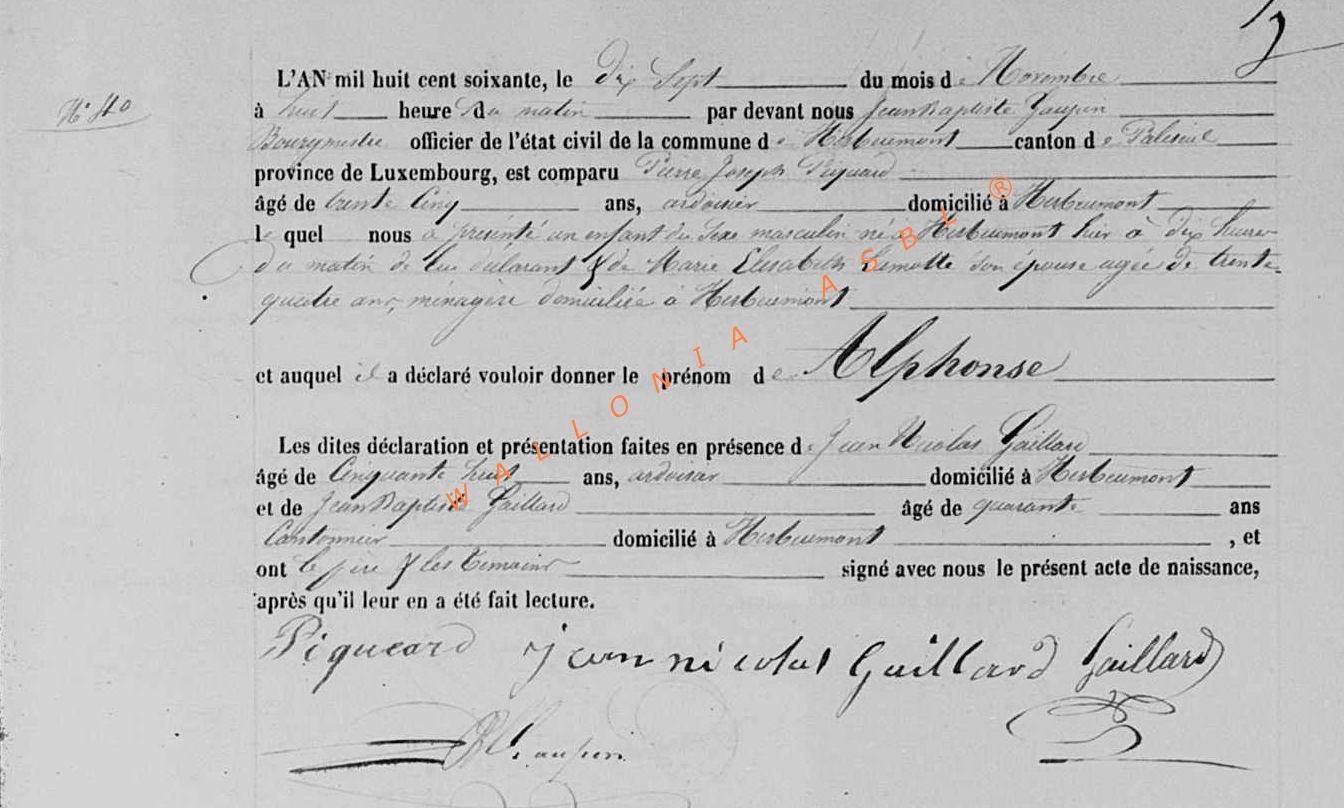 N° 40
L'AN mil huit cent soixante, le dix Sept du mois de Novembre
à huit heure du matin par devant nous Jean Baptiste
Bourgmestre officier de l'état civil de la commune de Herbeumont canton de Paliseul
province de Luxembourg, est comparu Pierre Joseph Piquard
âgé de trente Cinq ans, ardoisier domicilié à Herbeumont
le quel nous a présenté un enfant du sexe masculin né à Herbeumont hier à dix heures
du matin de lui déclarant & de Marie Elisabeth Lemotte son épouse agée de trente
quatre ans, ménagère domiciliée à Herbeumont
et auquel il a déclaré vouloir donner le prénom de Alphonse
Les dites déclaration et présentation faites en présence de Jean Nicolas Gaillard
âgé de Cinquante huit ans, ardoisier domicilié à Herbeumont
et de Jean Baptiste Gaillard âgé de quarante ans
Cantonnier domicilié à Herbeumont , et
ont le père & les témoins signé avec nous le présent acte de naissance,
après qu'il leur en a été fait lecture.
Piqueard jean nicolas Gaillard Gaillard
WALLONIA ASBL ®